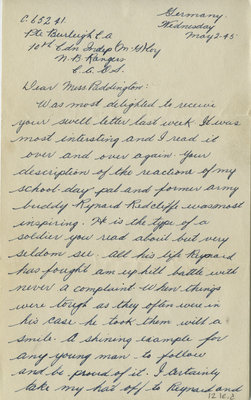 C.65241.
Germany.
Pte Burleigh E.A
Wednesday
May 2-45
10th Cdn Indep M.G. Coy
N.B. Rangers
C.A.O.S.
Dear Miss Paddington:
Was most delighted to receive
your swell letter last week It was
most intersting and I read it
over and over again. Your
description of the reactions of my
school-day pal and former army
buddy Rynard Redcliffe was most
inspiring. It is the type of a
soldier you read about but very
seldom see. All his life Rynard
has fought an up hill battle with
never a complaint. When things
were tough as they often were in
his case he took them with a
smile. A shining example for
any young man to follow
and be proud of it. I certainly
take my hat off to Rynard and